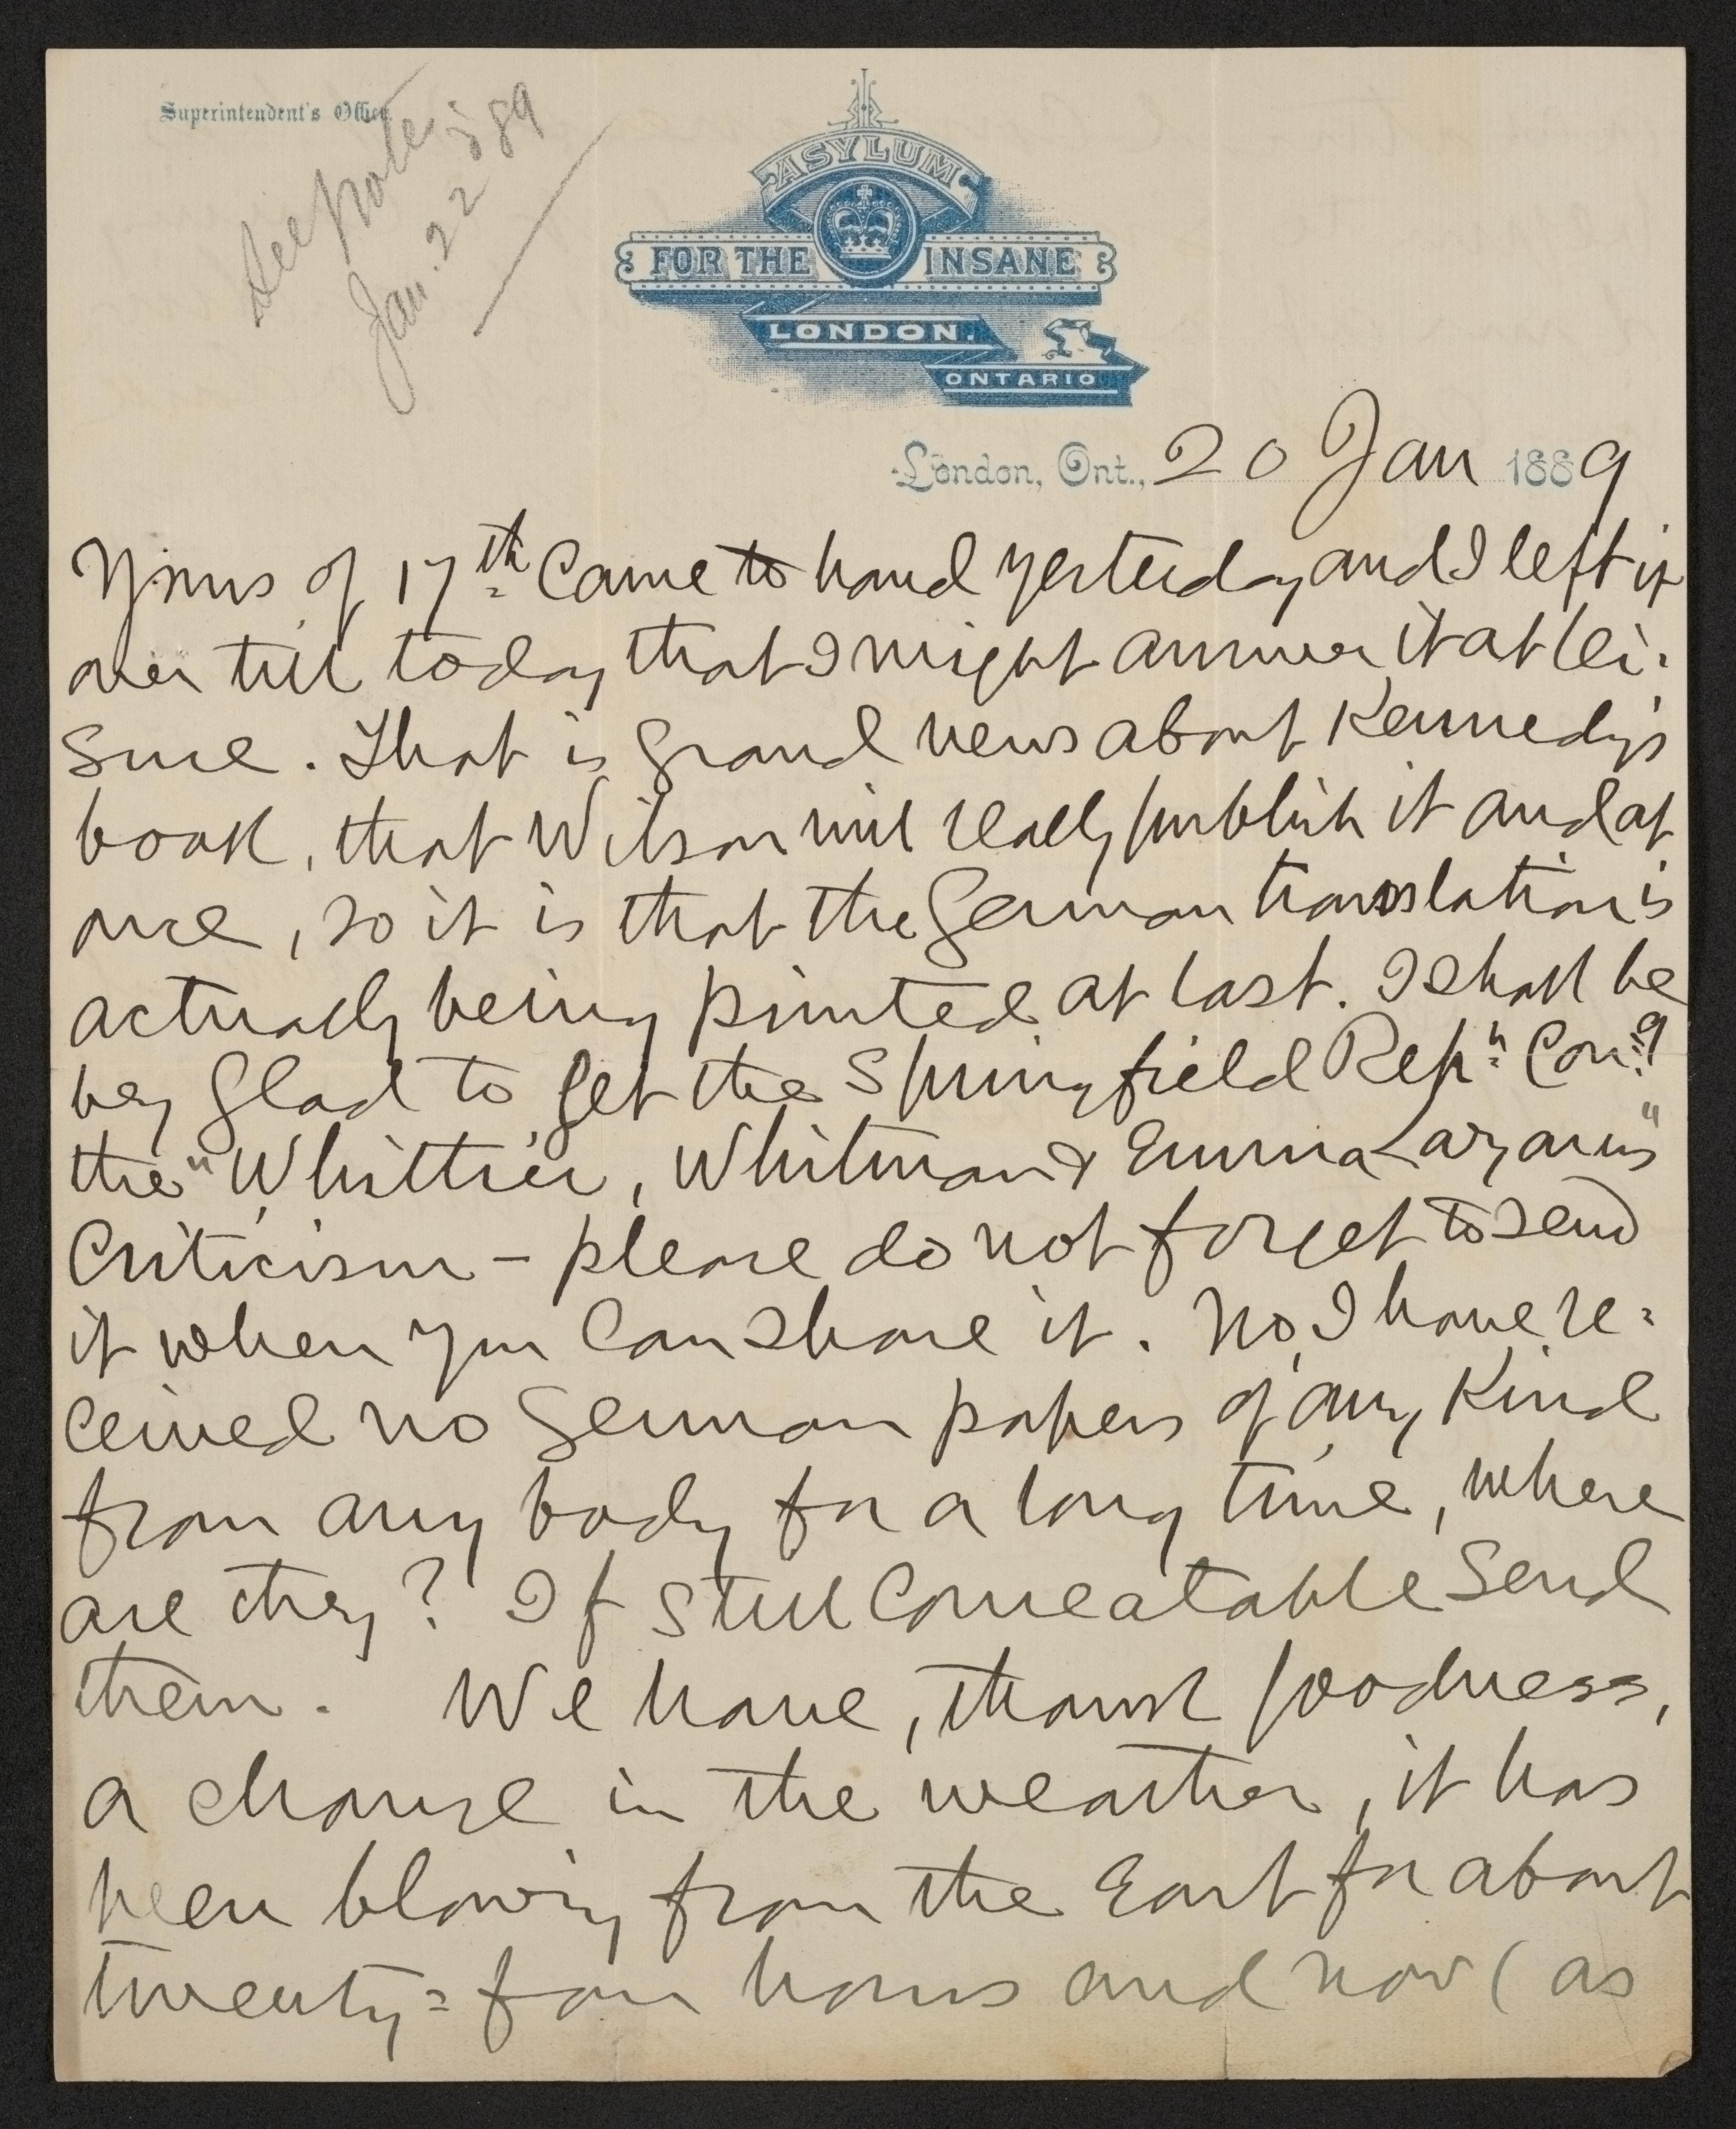 Superintendent's Office.
see notes
Jan. 22 '89
ASYLUM
FOR THE INSANE
LONDON.
ONTARIO
London, Ont., 20 Jan 1889
Yours of 17th came to hand yesterday and I left it
over till today that I might answer it at lei=
sure. That is grand news about Kennedy's
book, that Wilson will really publish it and at
once, so it is that the German translation is
actually being printed at last. I shall be
very glad to get the Springfield Repn cong
the "Whittier, Whitman & Emma Lazarus"
Criticism – please do not forget to send
it when you can spare it. No, I have re=
ceived no German papers of any kind
from any body for a long time, where
are they? If still comeatable send
them. We have, thank goodness,
a change in the weather, it has
been blowing from the East for about
twenty=four hours and now (as